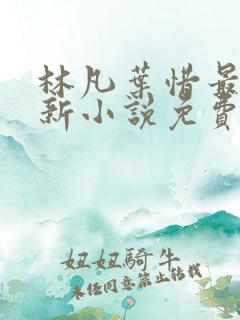 林凡葉惜最
新小說免費
妞妞騎牛
未任同意禁止轉載